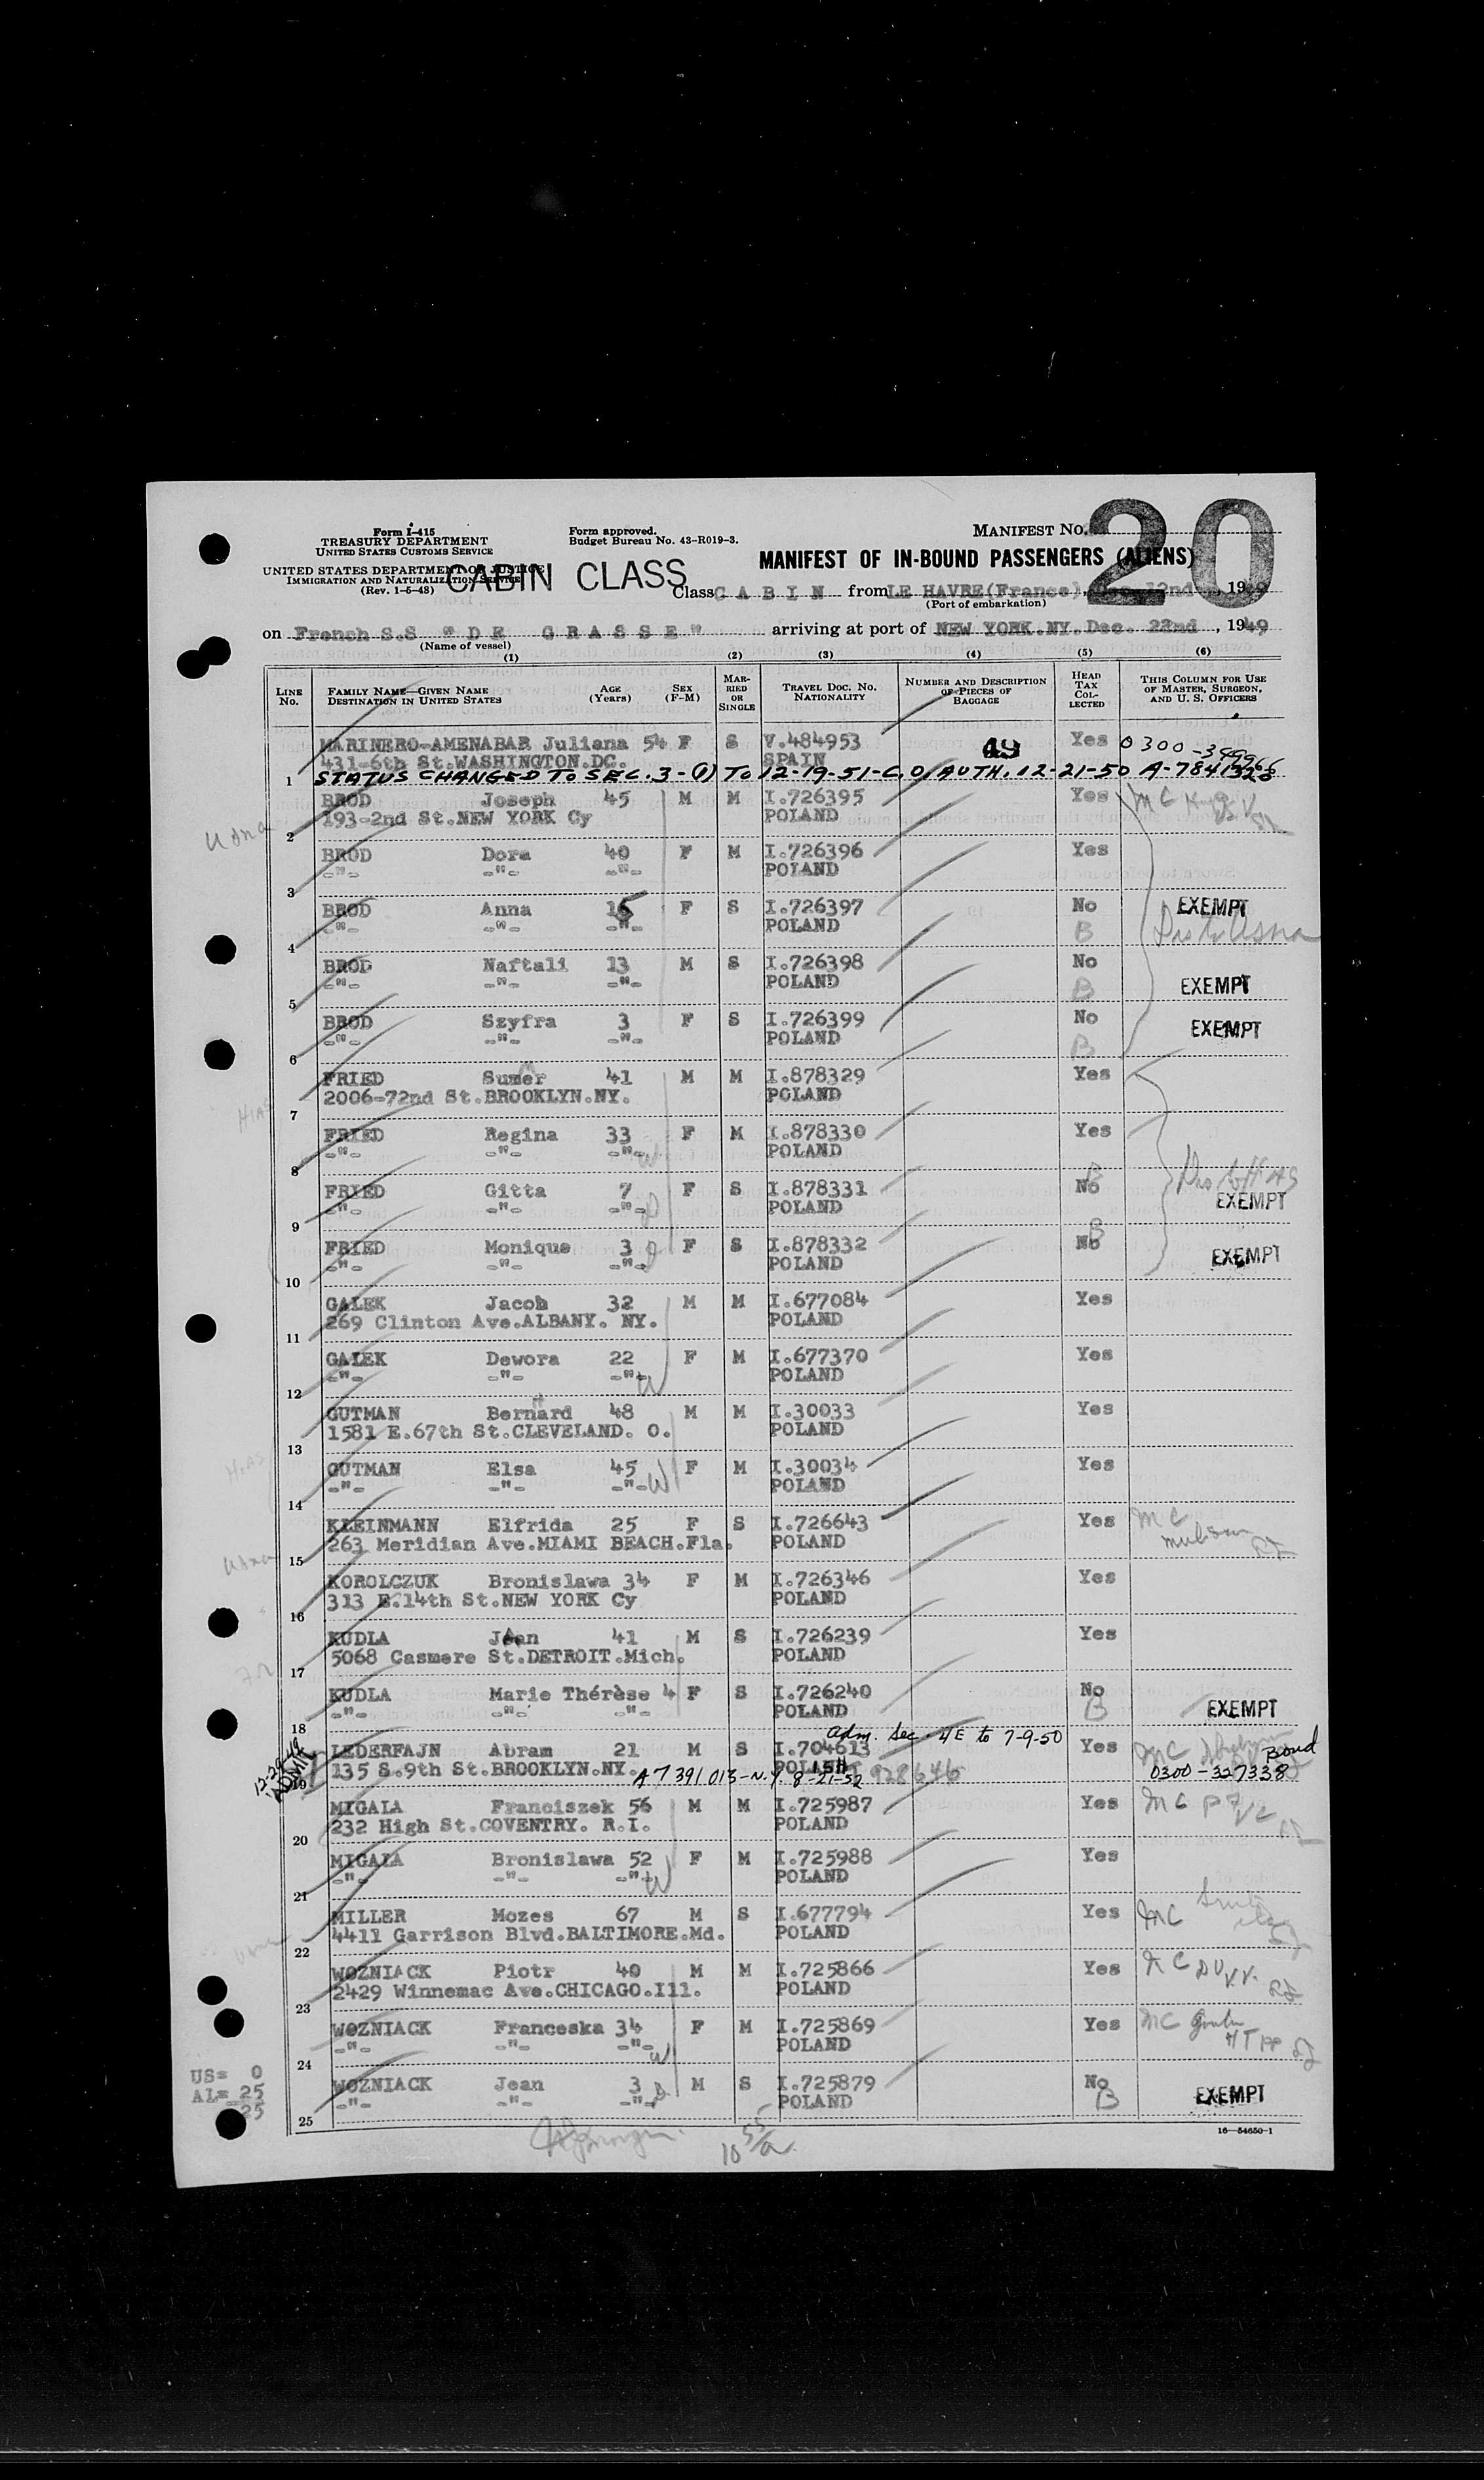 Form I-415
TREASURY DEPARTMENT
UNITED STATES CUSTOMS SERVICE
UNITED STATES DEPARTMENT OF JUSTICE
IMMIGRATION AND NATURALIZATION SERVICE
(Rev. 1-5-48)
Form approved.
Budget Bureau No. 43-R019-3.
MANIFEST No. 20
MANIFEST OF IN-BOUND PASSENGERS (ALIENS)
CABIN CLASS
Class C A B I N from LE HAVRE(France), 12nd, 1949
(Port of embarkation)
on French S.S "D E G R A S S E" arriving at port of NEW YORK.NY.Dec. 22nd, 1949
(Name of vessel)
(1) (2) (3) (4) (5) (6)
LINE No. FAMILY NAME—GIVEN NAME DESTINATION IN UNITED STATES AGE (Years) SEX (F-M) MARRIED OR SINGLE TRAVEL DOC. No. NATIONALITY NUMBER AND DESCRIPTION OF PIECES OF BAGGAGE HEAD TAX COLLECTED THIS COLUMN FOR USE OF MASTER, SURGEON, AND U. S. OFFICERS
MARINERO-AMENABAR Juliana 54 F S V.484953 49 Yes 0300-
431-6th St.WASHINGTON.DC. SPAIN
1 STATUS CHANGED TO SEC. 3-(1) TO 12-19-51-C.O. AUTH. 12-21-50 A-7841328
BROD Joseph 45 M M I.726395 Yes MC
193-2nd St.NEW YORK Cy POLAND
2 usna
BROD Dora 40 F M I.726396 Yes
-"- -"- -"- POLAND
3
BROD Anna 16 F S I.726397 No EXEMPT
-"- -"- -"- POLAND B
4
BROD Naftali 13 M S I.726398 No
-"- -"- -"- POLAND B EXEMPT
5
BROD Szyfra 3 F S I.726399 No EXEMPT
-"- -"- -"- POLAND B
6
FRIED Sumer 41 M M I.878329 Yes
2006-72nd St.BROOKLYN.NY. POLAND
7 HIAS
FRIED Regina 33 F M I.878330 Yes
-"- -"- -"- W POLAND
8
FRIED Gitta 7 F S I.878331 No B
-"- -"- -"- D POLAND EXEMPT
9
FRIED Monique 3 D F S I.878332 No B
-"- -"- -"- POLAND EXEMPT
10
GALEK Jacob 32 M M I.677084 Yes
269 Clinton Ave.ALBANY. NY. POLAND
11
GALEK Dewora 22 F M I.677370 Yes
-"- -"- -"- W POLAND
12
GUTMAN Bernard 48 M M I.30033 Yes
1581 E.67th St.CLEVELAND. O. POLAND
13 HIAS
GUTMAN Elsa 45 F M I.30034 Yes
-"- -"- -"- W POLAND
14
KLEINMANN Elfrida 25 F S I.726643 Yes MC
263 Meridian Ave.MIAMI BEACH.Fla. POLAND
15 usna
KOROLCZUK Bronislawa 34 F M I.726346 Yes
313 E.14th St.NEW YORK Cy POLAND
16
KUDLA Jean 41 M S I.726239 Yes
5068 Casmere St.DETROIT.Mich. POLAND
17
KUDLA Marie Thérèse 4 F S I.726240 No
-"- -"- -"- POLAND B EXEMPT
18 adm. Sec. 4E to 7-9-50
LEDERFAJN Abram 21 M S I.704613 Yes MC Bond
135 S.9th St.BROOKLYN.NY. POLISH 0300-327338
19 12-29-49 ADMIT A7 391 013-N.Y. 8-21-52 928646
MIGALA Franciszek 56 M M I.725987 Yes MC
232 High St.COVENTRY. R.I. POLAND
20
MIGALA Bronislawa 52 F M I.725988 Yes
-"- -"- -"- W POLAND
21
MILLER Mozes 67 M S I.677794 Yes MC
4411 Garrison Blvd.BALTIMORE.Md. POLAND
22
WOZNIACK Piotr 40 M M I.725866 Yes
2429 Winnemac Ave.CHICAGO.Ill. POLAND
23
WOZNIACK Franceska 34 F M I.725869 Yes MC
-"- -"- -"- W POLAND
24
WOZNIACK Jean 3 D M S I.725879 No
-"- -"- -"- POLAND B EXEMPT
25
US= 0
AL= 25
25
10 55/a
16—54650-1